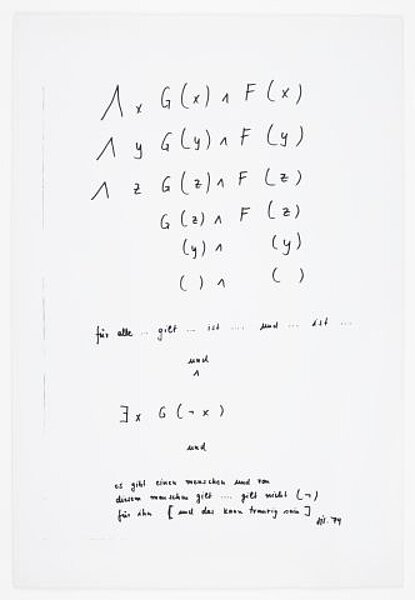 ⋀ x G(x) ∧ F(x)
⋀ y G(y) ∧ F(y)
⋀ z G(z) ∧ F(z)
G(z) ∧ F(z)
(y) ∧ (y)
( ) ∧ ( )
für alle ... gilt ... ist .... und ... ist ...
und
∧
∃x G(¬x)
und
es gibt einen menschen und von
diesem menschen gilt .... gilt nicht (¬)
für ihn [und das kann traurig sein]